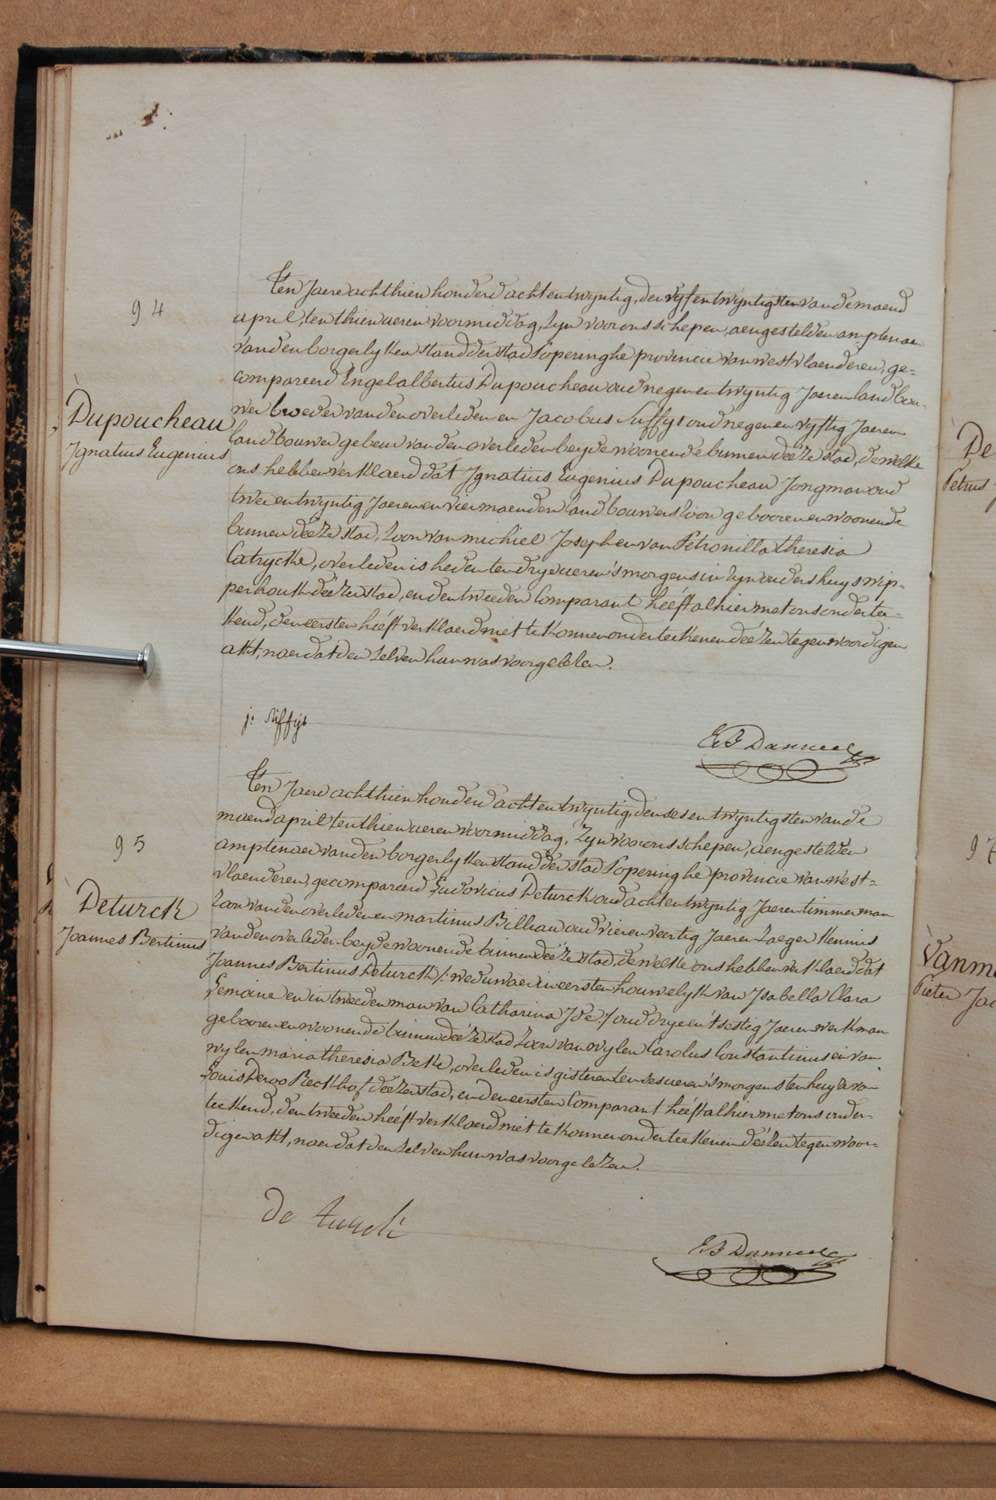 94
Dupoucheau
Ignatius Eugenius
Ten Jaere achthien honderd achtentwyntig, den vyfentwyntigsten van de maend
april, ten thien ueren voormiddag, Zyn voor ons schepen, aengestelden amptenaer
van den borgerlyken stand der stad Poperinghe provincie van westvlaenderen, ge=
compareerd Engel albertus Dupoucheau oud negenentwyntig Jaeren landbou-
wer broeder van den overleden en Jacobus Siffyt oud negenenvyftig Jaeren
landbouwer gebeur van den overleden beyde woonende binnen deéze stad, de welke
ons hebben verklaerd dat Ignatius Eugenius Dupoucheau Jongman oud
tweeentwyntig Jaeren en vier maenden landbouwers zoon gebooren en woonende
binnen deéze stad, Zoon van michiel Joseph en van Petronilla theresia
Catrycke, overleden is heden ten drye ueren s'morgens in zyn vaders huys wip-
perhoek deéze stad, en den tweeden Comparant heéft alhier met ons ondertee-
kend, den eersten heéft verklaerd niet te konnen onderteekenen deézen tegenwoordigen
akt, naer dat den zelven hun was voorgelezen.
j: Siffyt
95
Deturck
Joannes Bertinus
Ten Jaere achthien honderd achtentwyntig den sesentwyntigsten van de
maend april ten thien ueren voormiddag, Zyn voor ons schepen, aengestelden
amptenaer van den borgerlyken stand der stad Poperinghe provincie van west=
vlaenderen, gecompareerd Ludovicus Deturck oud achtentwyntig Jaeren timmerman
Zoon van den overleden en martinus Billiau oud vierenveertig Jaeren Zaeger kennis
van den overleden beyde woonende binnen deéze stad, de welke ons hebben verklaerd dat
Joannes Bertinus Deturck /: weduwaer in eersten houwelyk van Isabella Clara
Lemaire en in tweeden man van Catharina /oud dryeentsestig Jaeren werkman
gebooren en woonende binnen deéze stad Zoon van wylen Carolus Constantinus en van
wylen maria theresia Beke, overleden is gisteren ten ses ueren s'morgens ten huyze van
Louis Deroo deéze stad, en den eersten Comparant heéft alhier met ons onder-
teekend, den tweeden heéft verklaerd niet te konnen onderteekenen deézen tegenwoor-
digen akt, naer dat den zelven hun was voorgelezen.
De Turck
De
Petrus
97
Vanm
Pieter Jac